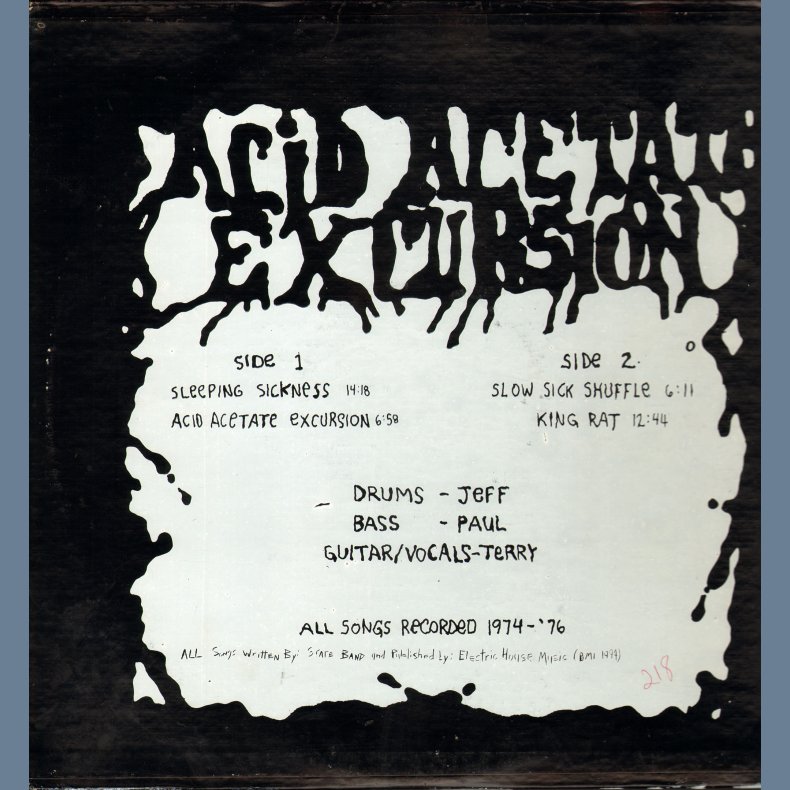 ACID ACETATE
EXCURSION
SIDE 1
SLEEPING SICKNESS 14:18
ACID ACETATE EXCURSION 6:58
SIDE 2.
SLOW SICK SHUFFLE 6:11
KING RAT 12:44
DRUMS - JEFF
BASS - PAUL
GUITAR/VOCALS-TERRY
ALL SONGS RECORDED 1974-'76
ALL Songs Written By: Band and Published by: Electric House Music (BMI
218